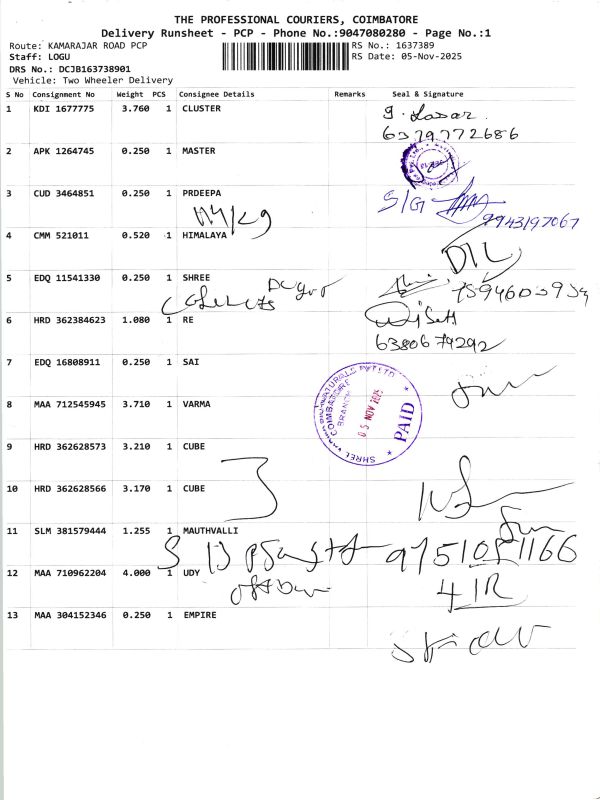 THE PROFESSIONAL COURIERS, COIMBATORE
Delivery Runsheet - PCP - Phone No.:9047080280 - Page No.:1
Route: KAMARAJAR ROAD PCP
RS No.: 1637389
Staff: LOGU
RS Date: 05-Nov-2025
DRS No.: DCJB163738901
Vehicle: Two Wheeler Delivery
S No Consignment No Weight PCS Consignee Details Remarks Seal & Signature
1 KDI 1677775 3.760 1 CLUSTER
6379772686
2 APK 1264745 0.250 1 MASTER
3 CUD 3464851 0.250 1 PRDEEPA
S/G 9943197067
4 CMM 521011 0.520 1 HIMALAYA
5 EDQ 11541330 0.250 1 SHREE
6 HRD 362384623 1.080 1 RE
6380679292
7 EDQ 16808911 0.250 1 SAI
COIMBATORE
BRANCH
05 NOV 2025
PAID
8 MAA 712545945 3.710 1 VARMA
9 HRD 362628573 3.210 1 CUBE
10 HRD 362628566 3.170 1 CUBE
11 SLM 381579444 1.255 1 MAUTHVALLI
9751051166
12 MAA 710962204 4.000 1 UDY
13 MAA 304152346 0.250 1 EMPIRE